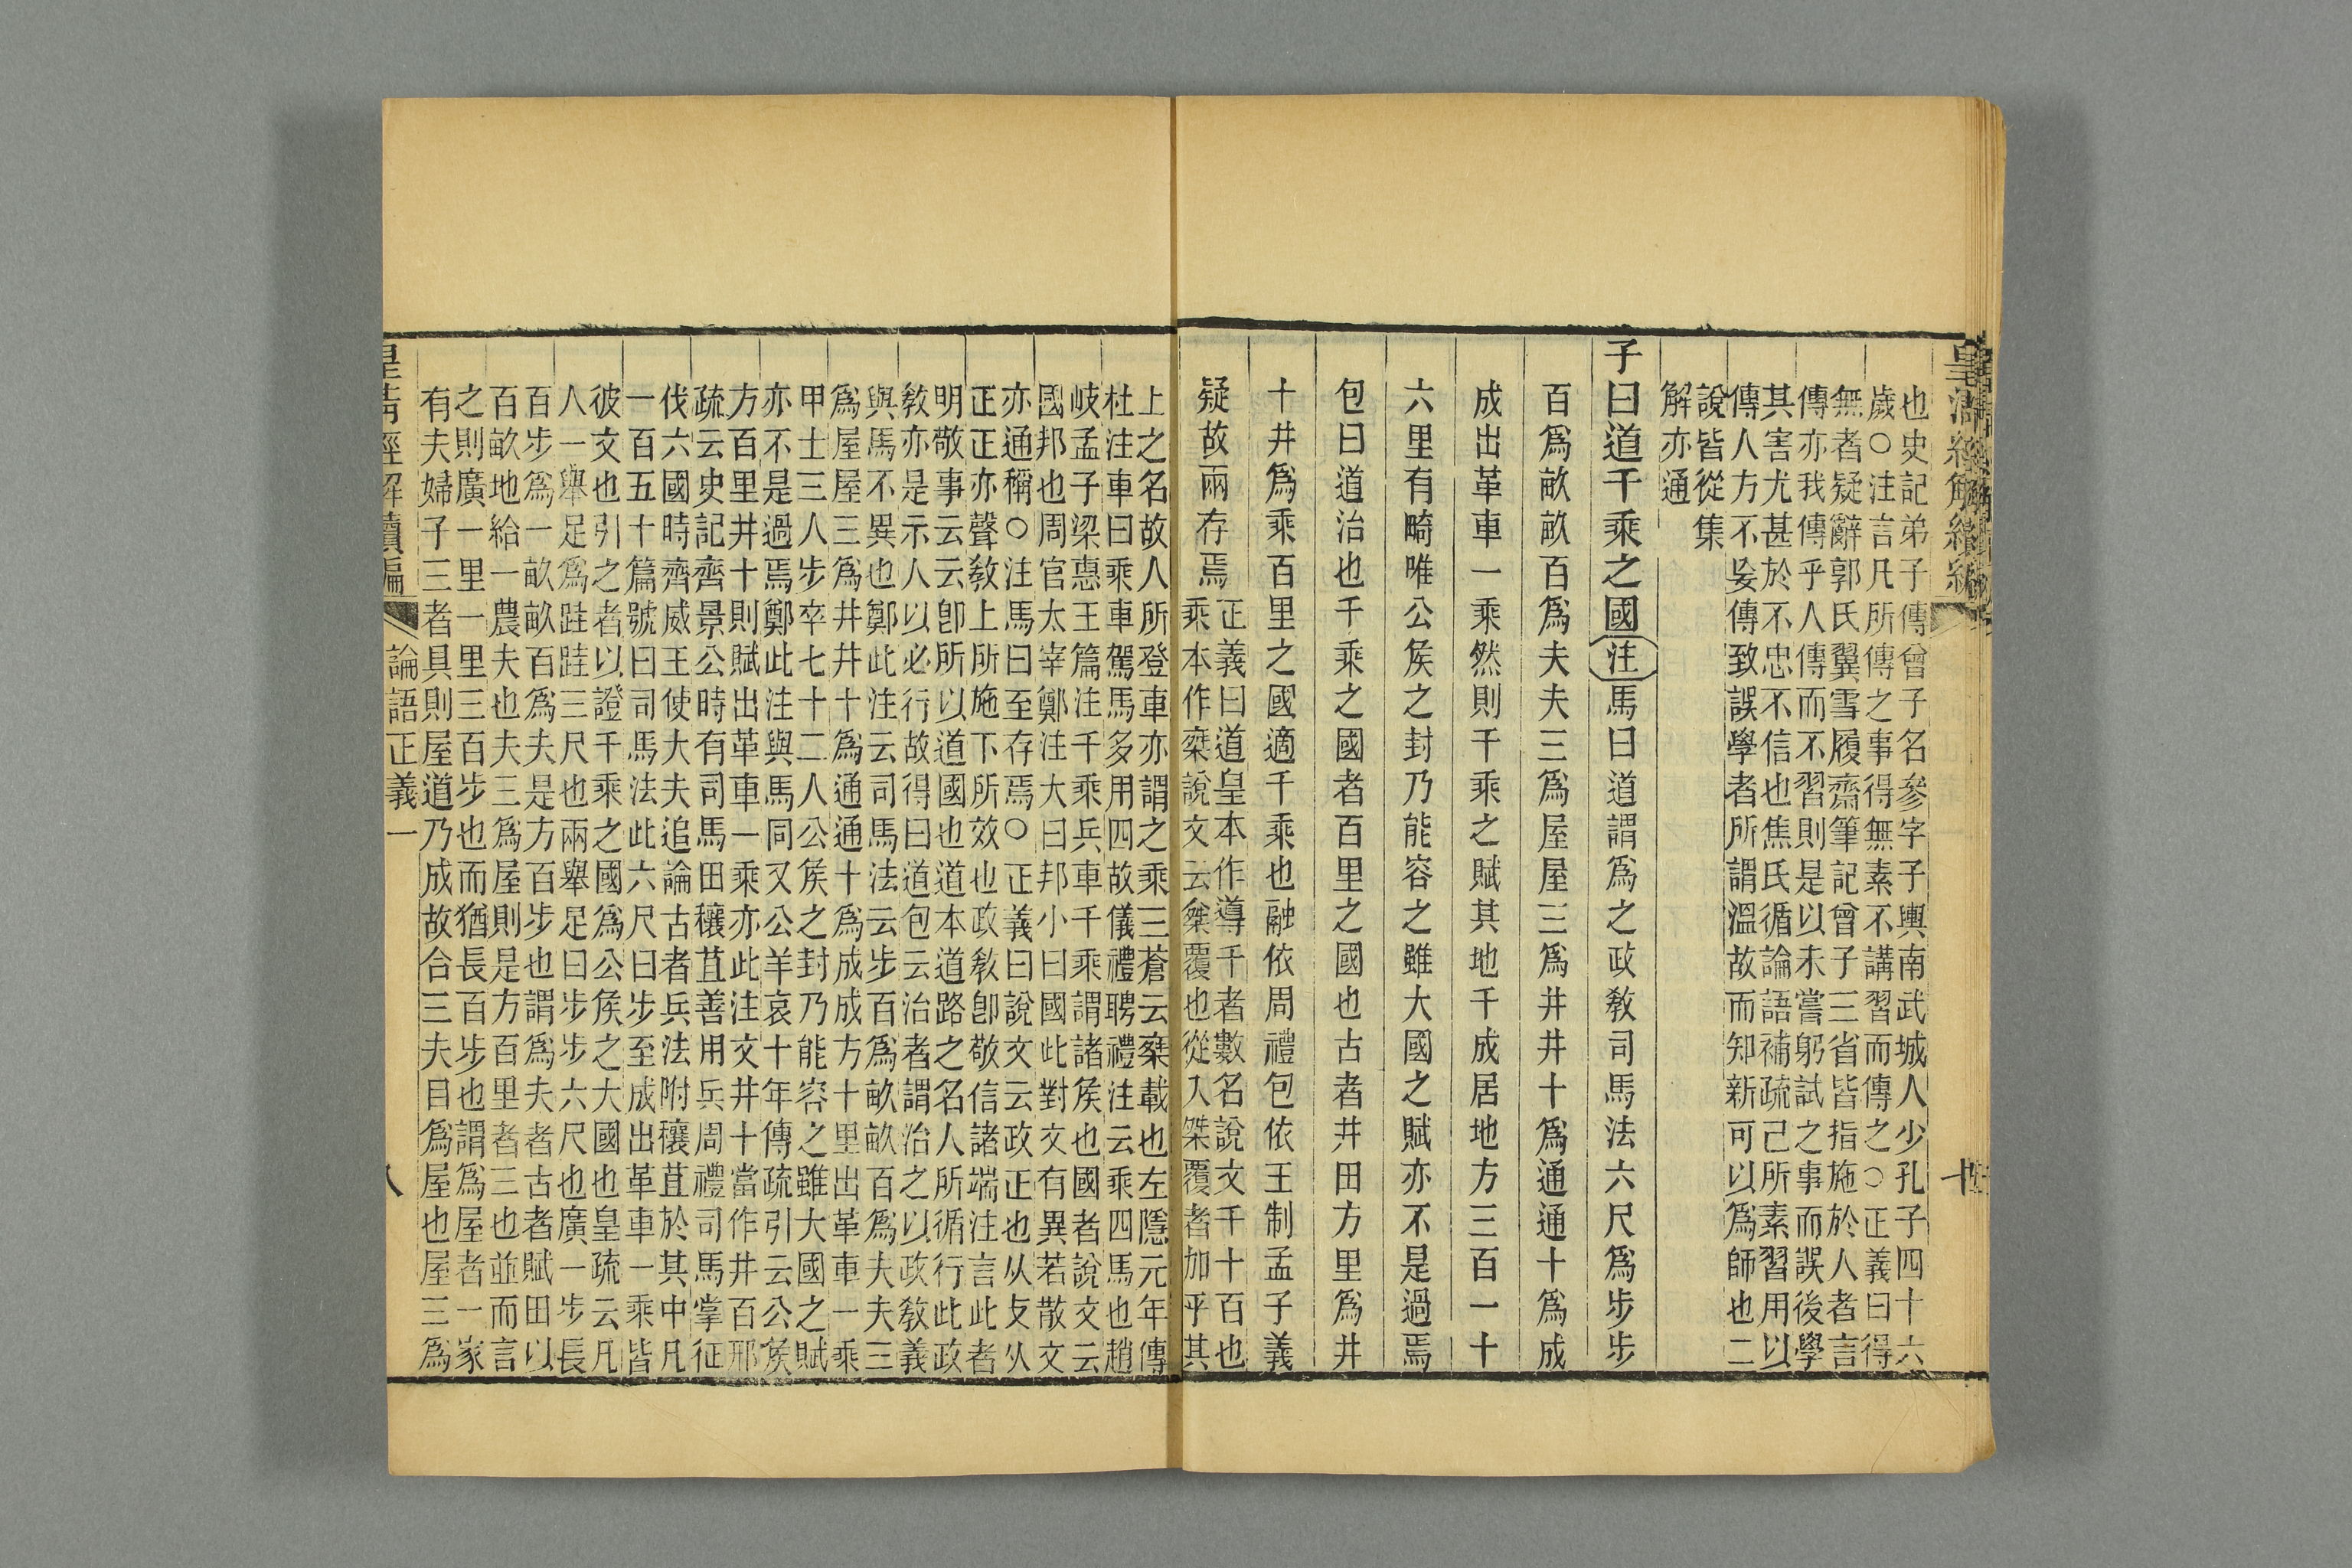 也史記弟子傳曾子名參字子輿南武城人少孔子四十六
歲○注言凡所傳之事得無素不講習而傳之○正義曰得
無者疑辭郭氏翼雪履齋筆記曾子三省皆指施於人者言
傳亦我傳乎人傳而不習則是以未嘗躬試之事而誤後學
其害尤甚於不忠不信也焦氏循論語補疏己所素習用以
傳人方不妄傳致誤學者所謂溫故而知新可以爲師也二
說皆從集
解亦通
子曰道千乘之國注馬曰道謂爲之政敎司馬法六尺爲步步
百爲畝畝百爲夫夫三爲屋屋三爲井井十爲通通十爲成
成出革車一乘然則千乘之賦其地千成居地方三百一十
六里有畸唯公矦之封乃能容之雖大國之賦亦不是過焉
包曰道治也千乘之國者百里之國也古者井田方里爲井
十井爲乘百里之國適千乘也融依周禮包依王制孟子義
疑故兩存焉
正義曰道皇本作導千者數名說文千十百也
乘本作椉說文云椉覆也從入桀覆者加乎其
上之名故人所登車亦謂之乘三蒼云椉載也左隱元年傳
杜注車曰乘車駕馬多用四故儀禮聘禮注云乘四馬也趙
岐孟子梁惠王篇注千乘兵車千乘謂諸矦也國者說文云
國邦也周官太宰鄭注大曰邦小曰國此對文有異若散文
亦通稱○注馬曰至存焉○正義曰說文云政正也从攴从
正正亦聲敎上所施下所效也政敎卽敬信諸端注言此者
明敬事云云卽所以道國也道本道路之名人所循行此政
敎亦是示人以必行故得曰道包云治者謂治之以政敎義
與馬不異也鄭此注云司馬法云步百爲畝畝百爲夫夫三
爲屋屋三爲井井十爲通通十爲成成方十里出革車一乘
甲士三人步卒七十二人公矦之封乃能容之雖大國之賦
亦不是過焉鄭此注與馬同又公羊哀十年傳疏引云公矦
方百里井十則賦出革車一乘亦此注文井十當作井百邢
疏云史記齊景公時有司馬田穰苴善用兵周禮司馬掌征
伐六國時齊威王使大夫追論古者兵法附穰苴於其中凡
一百五十篇號曰司馬法此六尺曰步步至成出革車一乘皆
彼文也引之者以證千乘之國爲公矦之大國也皇疏云凡
人一舉足爲跬跬三尺也兩舉足曰步步六尺也廣一步長
百步爲一畝畝百爲夫是方百步也謂爲夫者古者賦田以
百畝地給一農夫也夫三爲屋則是方百里者三也並而言
之則廣一里一里三百步也而猶長百步也謂爲屋者一家
有夫婦子三者具則屋道乃成故合三夫目爲屋也屋三爲
皇清經解續編
論語正義一
八